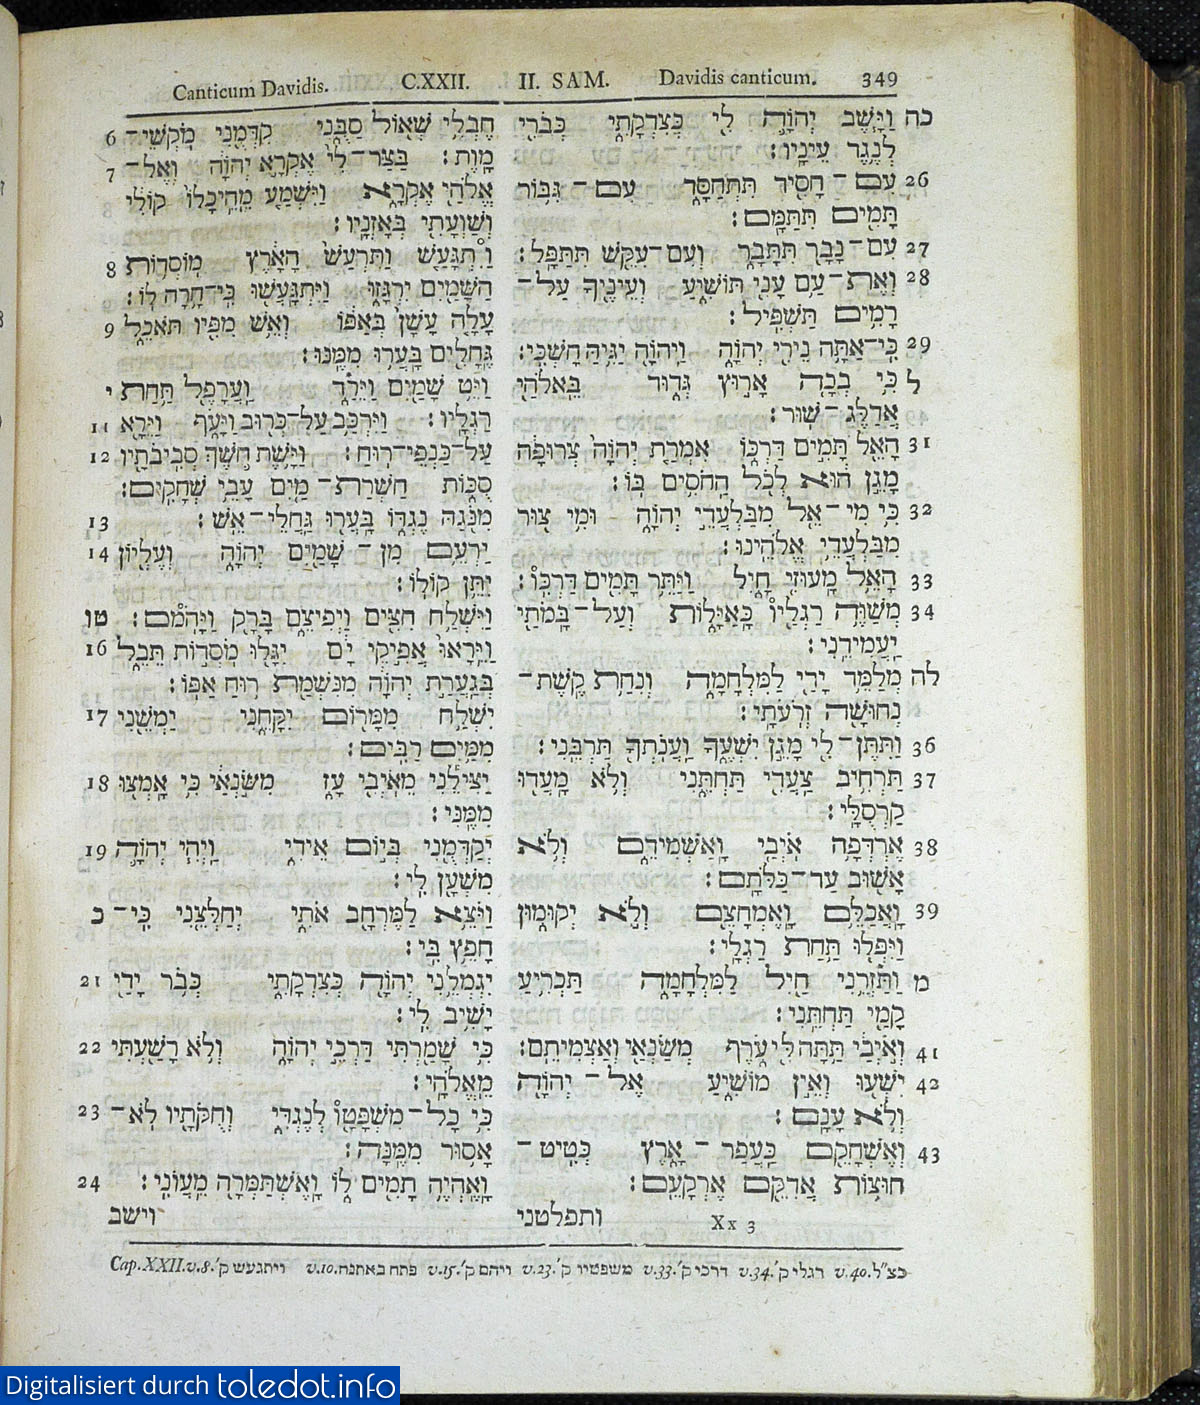 Canticum Davidis. C.XXII. II. SAM. Davidis canticum. 349
6 חֶבְלֵי שְׁאוֹל סַבֻּנִי קִדְּמֻנִי מֹקְשֵׁי־
7 מָוֶת: בַּצַּר־לִי אֶקְרָא יְהוָֹה וְאֶל־
אֱלֹהַי אֶקְרָא וַיִּשְׁמַע מֵהֵיכָלוֹ קוֹלִי
וְשַׁוְעָתִי בְּאָזְנָיו:
8 וַיִּתְגָּעַשׁ וַתִּרְעַשׁ הָאָרֶץ מוֹסְדוֹת
הַשָּׁמַיִם יִרְגָּזוּ וַיִּתְגָּעֲשׁוּ כִּי־חָרָה לוֹ:
9 עָלָה עָשָׁן בְּאַפּוֹ וְאֵשׁ מִפִּיו תֹּאכֵל
גֶּחָלִים בָּעֲרוּ מִמֶּנּוּ:
י וַיֵּט שָׁמַיִם וַיֵּרַד וַעֲרָפֶל תַּחַת
11 רַגְלָיו: וַיִּרְכַּב עַל־כְּרוּב וַיָּעֹף וַיֵּרָא
12 עַל־כַּנְפֵי־רוּחַ: וַיָּשֶׁת חֹשֶׁךְ סְבִיבֹתָיו
סֻכּוֹת חַשְׁרַת־מַיִם עָבֵי שְׁחָקִים:
13 מִנֹּגַהּ נֶגְדּוֹ בָּעֲרוּ גַּחֲלֵי־אֵשׁ:
14 יַרְעֵם מִן־שָׁמַיִם יְהוָֹה וְעֶלְיוֹן
יִתֵּן קוֹלוֹ:
טו וַיִּשְׁלַח חִצִּים וַיְפִיצֵם בָּרָק וַיָּהֹם:
16 וַיֵּרָאוּ אֲפִיקֵי יָם יִגָּלוּ מֹסְדוֹת תֵּבֵל
בְּגַעֲרַת יְהוָֹה מִנִּשְׁמַת רוּחַ אַפּוֹ:
17 יִשְׁלַח מִמָּרוֹם יִקָּחֵנִי יַמְשֵׁנִי
מִמַּיִם רַבִּים:
18 יַצִּילֵנִי מֵאֹיְבִי עָז מִשֹּׂנְאַי כִּי אָמְצוּ
מִמֶּנִּי:
19 יְקַדְּמֻנִי בְּיוֹם אֵידִי וַיְהִי יְהוָֹה
מִשְׁעָן לִי:
כ וַיֹּצֵא לַמֶּרְחָב אֹתִי יְחַלְּצֵנִי כִּי־
חָפֵץ בִּי:
21 יִגְמְלֵנִי יְהוָֹה כְּצִדְקָתִי כְּבֹר יָדַי
יָשִׁיב לִי:
22 כִּי שָׁמַרְתִּי דַּרְכֵי יְהוָֹה וְלֹא רָשַׁעְתִּי
מֵאֱלֹהָי:
23 כִּי כָל־מִשְׁפָּטָו לְנֶגְדִּי וְחֻקֹּתָיו לֹא־
אָסוּר מִמֶּנָּה:
24 וָאֶהְיֶה תָמִים לוֹ וָאֶשְׁתַּמְּרָה מֵעֲוֹנִי:
וישב
כה וַיָּשֶׁב יְהוָֹה לִי כְּצִדְקָתִי כְּבֹרִי
לְנֶגֶד עֵינָיו:
26 עִם־חָסִיד תִּתְחַסָּד עִם־גִּבּוֹר
תָּמִים תִּתַּמָּם:
27 עִם־נָבָר תִּתָּבָר וְעִם־עִקֵּשׁ תִּתַּפָּל:
28 וְאֶת־עַם עָנִי תּוֹשִׁיעַ וְעֵינֶיךָ עַל־
רָמִים תַּשְׁפִּיל:
29 כִּי־אַתָּה נֵירִי יְהוָֹה וַיהוָֹה יַגִּיהַּ חָשְׁכִּי:
ל כִּי בְכָה אָרוּץ גְּדוּד בֵּאלֹהַי
אֲדַלֶּג־שׁוּר:
31 הָאֵל תָּמִים דַּרְכּוֹ אִמְרַת יְהוָֹה צְרוּפָה
מָגֵן הוּא לְכֹל הַחֹסִים בּוֹ:
32 כִּי מִי־אֵל מִבַּלְעֲדֵי יְהוָֹה וּמִי צוּר
מִבַּלְעֲדֵי אֱלֹהֵינוּ:
33 הָאֵל מָעוּזִּי חָיִל וַיַּתֵּר תָּמִים דַּרְכִּוֹ:
34 מְשַׁוֶּה רַגְלַיִו כָּאַיָּלוֹת וְעַל־בָּמֹתַי
יַעֲמִידֵנִי:
לה מְלַמֵּד יָדַי לַמִּלְחָמָה וְנִחַת קֶשֶׁת־
נְחוּשָׁה זְרֹעֹתָי:
36 וַתִּתֶּן־לִי מָגֵן יִשְׁעֶךָ וַעֲנֹתְךָ תַּרְבֵּנִי:
37 תַּרְחִיב צַעֲדִי תַּחְתֵּנִי וְלֹא מָעֲדוּ
קַרְסֻלָּי:
38 אֶרְדְּפָה אֹיְבַי וָאַשְׁמִידֵם וְלֹא
אָשׁוּב עַד־כַּלּוֹתָם:
39 וָאֲכַלֵּם וָאֶמְחָצֵם וְלֹא יְקוּמוּן
וַיִּפְּלוּ תַּחַת רַגְלָי:
מ וַתַּזְרֵנִי חַיִל לַמִּלְחָמָה תַּכְרִיעַ
קָמַי תַּחְתֵּנִי:
41 וְאֹיְבַי תַּתָּה לִּי עֹרֶף מְשַׂנְאַי וָאַצְמִיתֵם:
42 יִשְׁעוּ וְאֵין מוֹשִׁיעַ אֶל־יְהוָֹה
וְלֹא עָנָם:
43 וְאֶשְׁחָקֵם כַּעֲפַר־אָרֶץ כְּטִיט־
חוּצוֹת אֲדִקֵּם אֶרְקָעֵם:
Xx 3 ותפלטני
Cap. XXII. v. 8. ויתגעש ק'. v. 10. פתח באתנח v. 15. ויהם ק'. v. 23. משפטיו ק'. v. 33. דרכי ק'. v. 34. רגלי ק'. v. 40. כצ"ל
Digitalisiert durch toledot.info